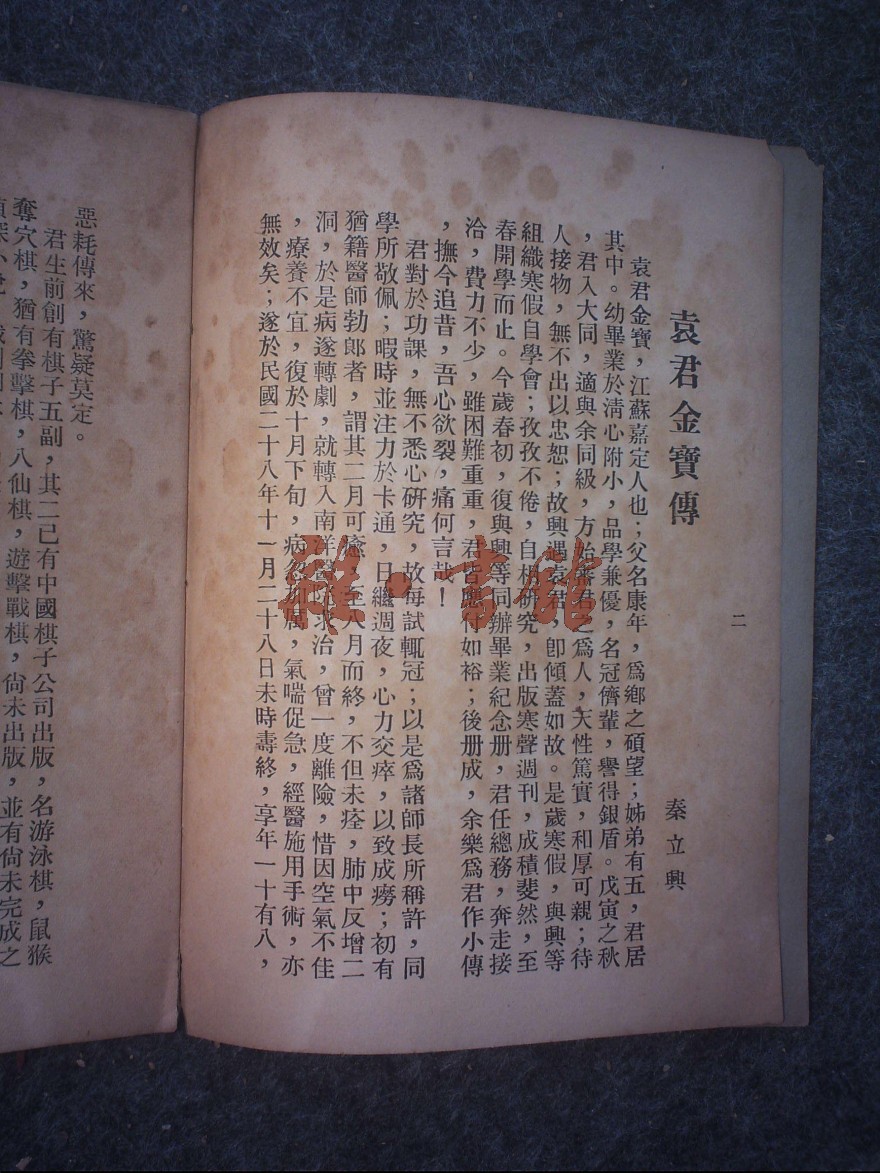 二
袁君金寶傳
秦立興
袁君金寶，江蘇嘉定人也；父名康年，爲鄉之碩望；姊弟有五，君居
其中。幼畢業於淸心附小，品學兼優，名冠儕輩，譽得銀盾。戊寅之秋
，君入大同，適與余同級，方始審君之爲人，天性篤實，和厚可親；待
人接物，無不出以忠恕；故興遇袁君，卽傾蓋如故。是歲寒假，與興等
組織寒假自學會；孜孜不倦，自相研究，出版寒聲週刊，成積斐然，至
春開學而止。今歲春初，復與興等同辦畢業紀念册，君任總務，奔走接
洽，費力不少，雖困難重重，君皆應付如裕；後册成，余樂爲君作小傳
，撫今追昔，吾心欲裂，痛何言哉！
君對於功課，無不悉心研究，故每試輒冠；以是爲諸師長所稱許，同
學所敬佩；暇時並注力於卡通，日繼週夜，心力交瘁，以致成癆；初有
猶籍醫師勃郞者，謂其二月可癒，至八月而終，不但未痊，肺中反增二
洞，於是病遂轉劇，就轉入南洋醫院求治，曾一度離險，惜因空氣不佳
，療養不宜，復於十月下旬，病忽加厲，氣喘促急，經醫施用手術，亦
無效矣；遂於民國二十八年十一月二十八日未時壽終，享年一十有八，
惡耗傳來，驚疑莫定。
君生前創有棋子五副，其二已有中國棋子公司出版，名游泳棋，鼠猴
奪穴棋，猶有拳擊棋，八仙棋，遊擊戰棋，尙未出版，並有尙未完成之
雜·書館